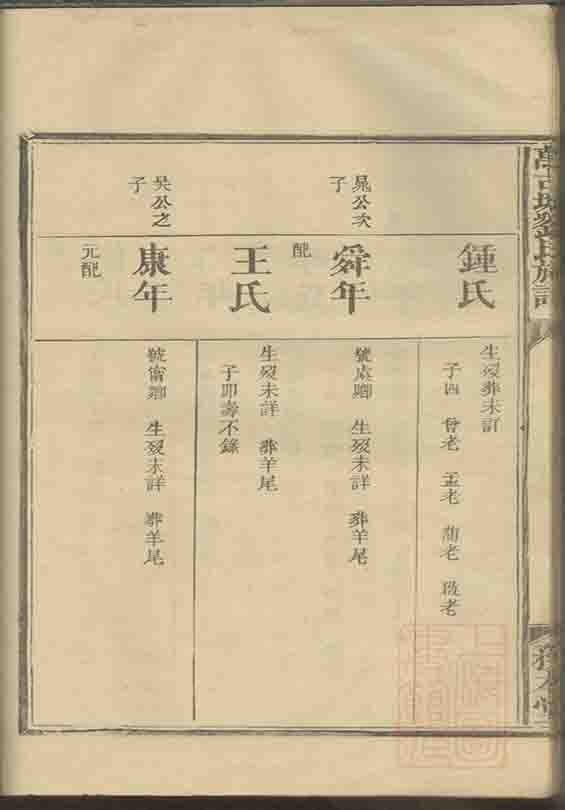 鍾氏
生歿葬未詳
子四 曾老 孟老 蘭老 啟老
晁公次
子
舜年
號虞卿 生歿未詳 葬羊尾
配
王氏
生歿未詳 葬羊尾
子卯壽不錄
昊公之
子
康年
號甯卿 生歿未詳 葬羊尾
元配